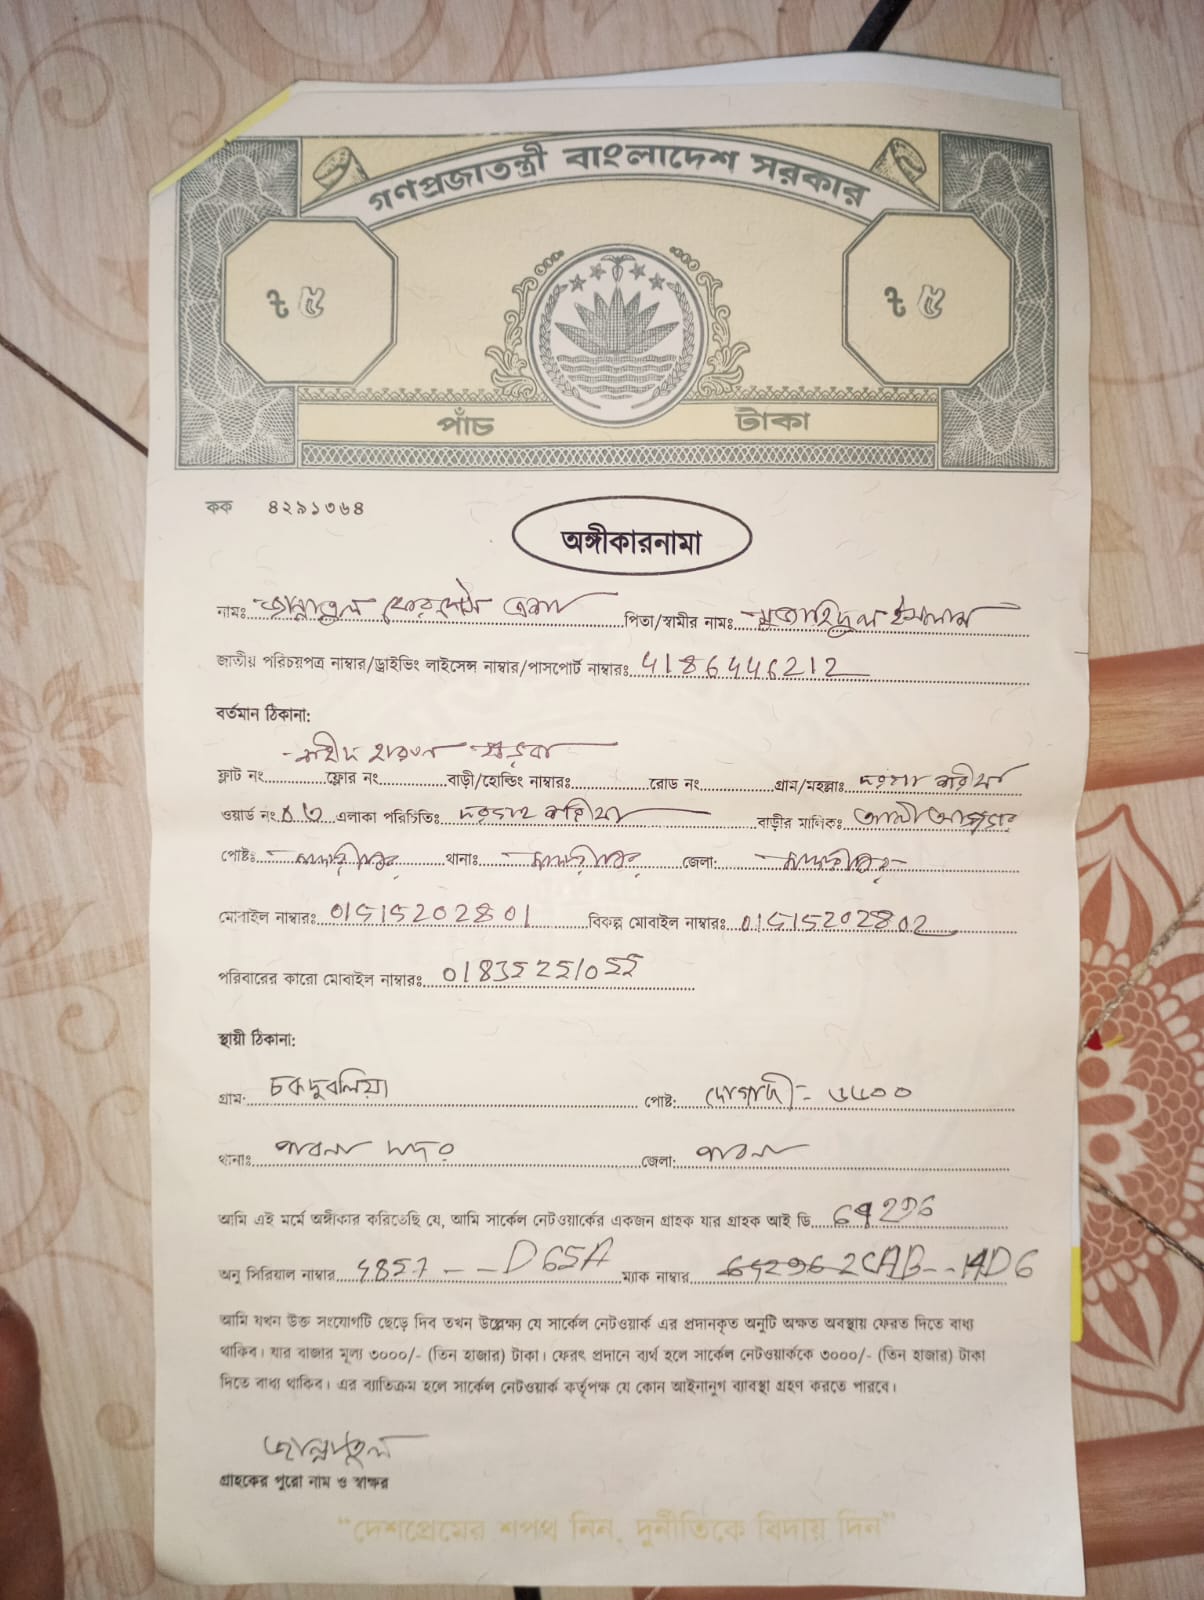 গণপ্রজাতন্ত্রী বাংলাদেশ সরকার
৳ ৫ ৳ ৫
পাঁচ টাকা
কক ৪২৯১৩৬৪
অঙ্গীকারনামা
নামঃ জান্নাতুল ফেরদৌস পিতা/স্বামীর নামঃ ইসলাম
জাতীয় পরিচয়পত্র নাম্বার/ড্রাইভিং লাইসেন্স নাম্বার/পাসপোর্ট নাম্বারঃ 4186446212
বর্তমান ঠিকানা:
ফ্লাট নং ফ্লোর নং বাড়ী/হোল্ডিং নাম্বারঃ রোড নং গ্রাম/মহল্লাঃ
ওয়ার্ড নং এলাকা পরিচিতিঃ বাড়ীর মালিকঃ
পোষ্টঃ থানাঃ জেলা:
মোবাইল নাম্বারঃ 01515202801 বিকল্প মোবাইল নাম্বারঃ 01515202802
পরিবারের কারো মোবাইল নাম্বারঃ
স্থায়ী ঠিকানা:
গ্রাম: চকদুবলিয়া পোষ্ট: দোগাছী - ৬৬০০
থানাঃ পাবনা সদর জেলা: পাবনা
আমি এই মর্মে অঙ্গীকার করিতেছি যে, আমি সার্কেল নেটওয়ার্কের একজন গ্রাহক যার গ্রাহক আই ডি
অনু সিরিয়াল নাম্বার D65A ম্যাক নাম্বার 2CAB--14D6
আমি যখন উক্ত সংযোগটি ছেড়ে দিব তখন উল্লেক্ষ্য যে সার্কেল নেটওয়ার্ক এর প্রদানকৃত অনুটি অক্ষত অবস্থায় ফেরত দিতে বাধ্য
থাকিব। যার বাজার মূল্য ৩০০০/- (তিন হাজার) টাকা। ফেরৎ প্রদানে ব্যর্থ হলে সার্কেল নেটওয়ার্ককে ৩০০০/- (তিন হাজার) টাকা
দিতে বাধ্য থাকিব। এর ব্যতিক্রম হলে সার্কেল নেটওয়ার্ক কর্তৃপক্ষ যে কোন আইনানুগ ব্যাবস্থা গ্রহণ করতে পারবে।
জান্নাতুল
গ্রাহকের পুরো নাম ও স্বাক্ষর
"দেশপ্রেমের শপথ নিন, দুর্নীতিকে বিদায় দিন"